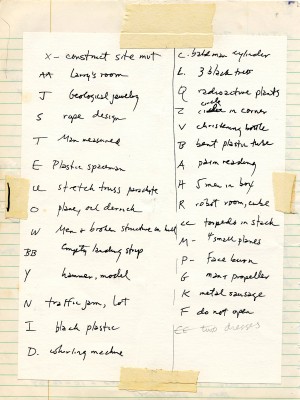 X - construct site mut
AA Larry's room
J Geological jewelry
S rope design
T Man measured
E Plastic spaceman
U stretch truss parachute
O plane, oil derrick
W Men + broken structure in
BB Empty landing strip
Y hammer, model
N traffic jam, lot
I black plastic
D. whirling machine
C. bald man cylinder
L. 3 black trees
Q radioactive plants
Z circle in corner
V christening bottle
B bent plastic tube
A palm reading
H 5 men in box
R robot room, cube
CC torpedo in stack
M - 4 small planes
P - face burn
G man + propeller
K metal sausage
F do not open
EE two dresses